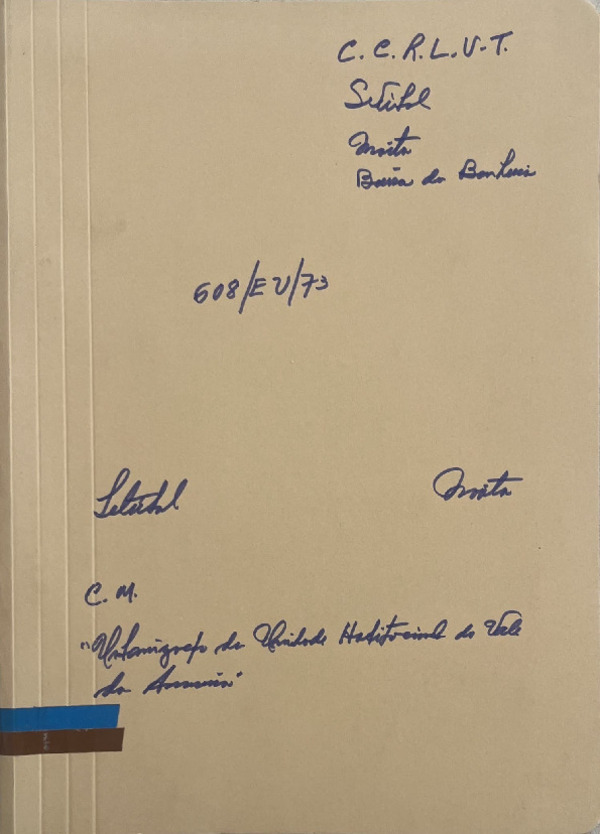 C.C.R.L.V.T.
Setúbal
Moita
Baixa da Banheira
608/EU/73
Setúbal
Moita
C.M.
"Urbanização da Unidade Habitacional do Vale
da Amoreira"